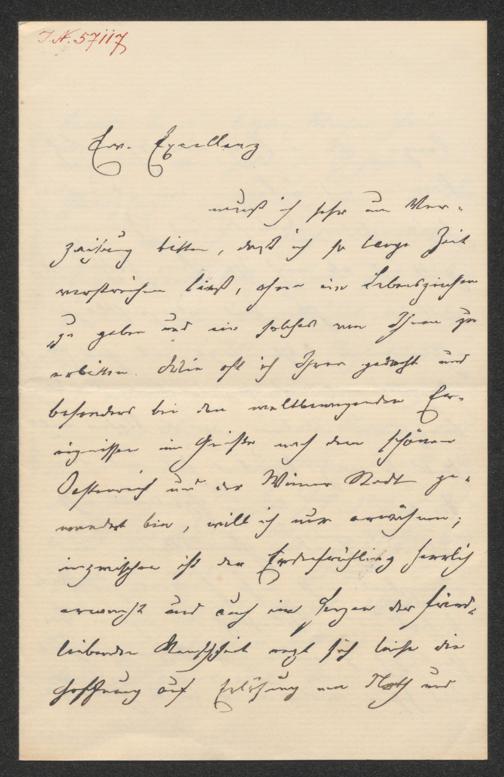 J.N. 57117
Euer Excellenz
muß ich sehr um Ver-
zeihung bitten, daß ich so lange Zeit
verstreichen ließ, ohne ein Lebenszeichen
zu geben und ein solches von Ihnen zu
erbitten. Wie oft ich Ihrer gedacht und
besonders bei den weltbewegenden Er-
eignissen im Geiste nach dem schönen
Oesterreich und der Wiener Stadt ge-
wandert bin, will ich nur erwähnen;
inzwischen ist der Erdenfrühling herrlich
erwacht und auch im Herzen der fried-
liebenden Menschheit regt sich leise die
Hoffnung auf Erlösung von Noth und